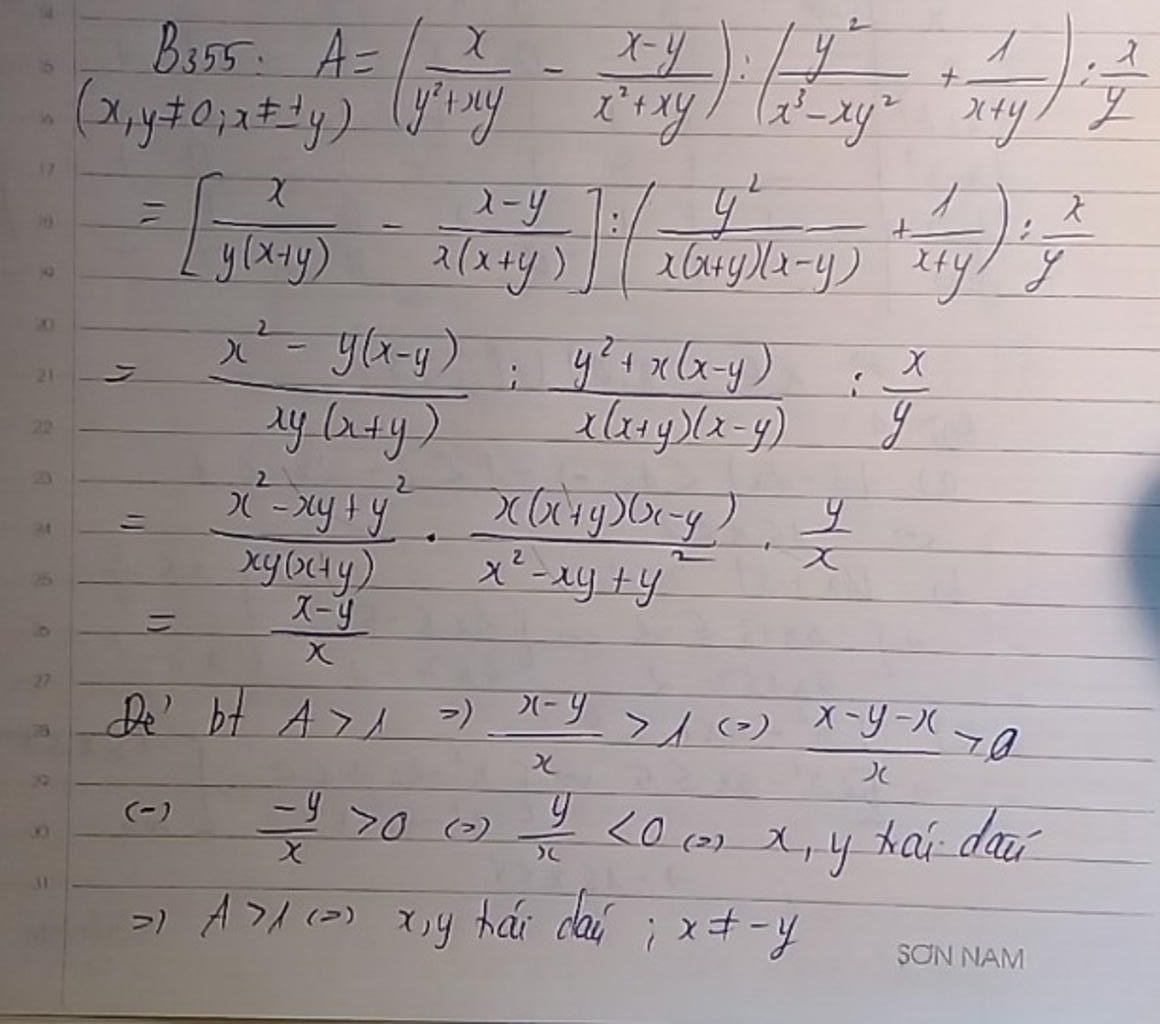 B355: A = (x/(y²+xy) - (x-y)/(x²+xy)) : (y²/(x³-xy²) + 1/(x+y)) : x/y
(x,y≠0; x≠±y)
= [x/(y(x+y)) - (x-y)/(x(x+y))] : (y²/(x(x+y)(x-y)) + 1/(x+y)) : x/y
= (x² - y(x-y))/(xy(x+y)) : (y² + x(x-y))/(x(x+y)(x-y)) : x/y
= (x²-xy+y²)/(xy(x+y)) . (x(x+y)(x-y))/(x²-xy+y²) . y/x
= (x-y)/x
Để bt A > 1 => (x-y)/x > 1 (=) (x-y-x)/x > 0
(=) -y/x > 0 (=) y/x < 0 (=) x, y trái dấu
=) A > 1 (=) x, y trái dấu ; x ≠ -y
SƠN NAM
14
15
16
17
18
19
20
21
22
23
24
25
26
27
28
29
30
31